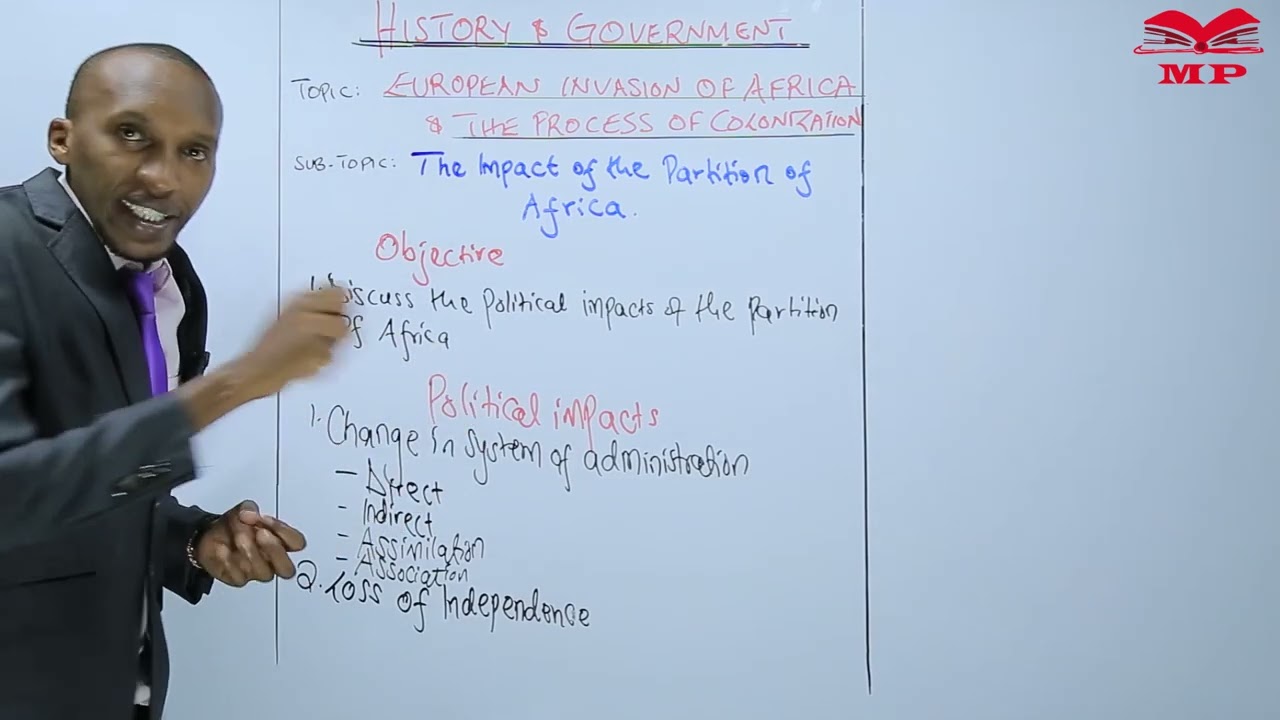 HISTORY & GOVERNMENT
TOPIC: EUROPEAN INVASION OF AFRICA
& THE PROCESS OF COLONIZATION
SUB-TOPIC: The Impact of the Partition of
Africa.
Objective
1. Discuss the political impacts of the partition
of Africa
Political impacts
1. Change in system of administration
- Direct
- Indirect
- Assimilation
- Association
2. Loss of Independence
MP